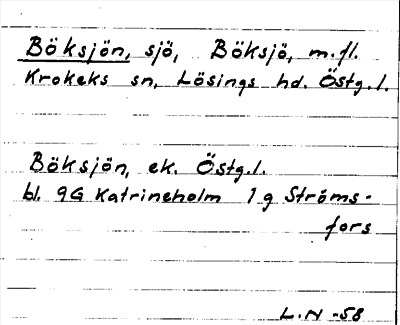 Böksjön, sjö, Böksjö, m.fl.
Krokeks sn, Lösings hd. Östg.l.
Böksjön, ek. Östg.l.
bl. 9G Katrineholm 1g Ströms-
fors
L.N -58